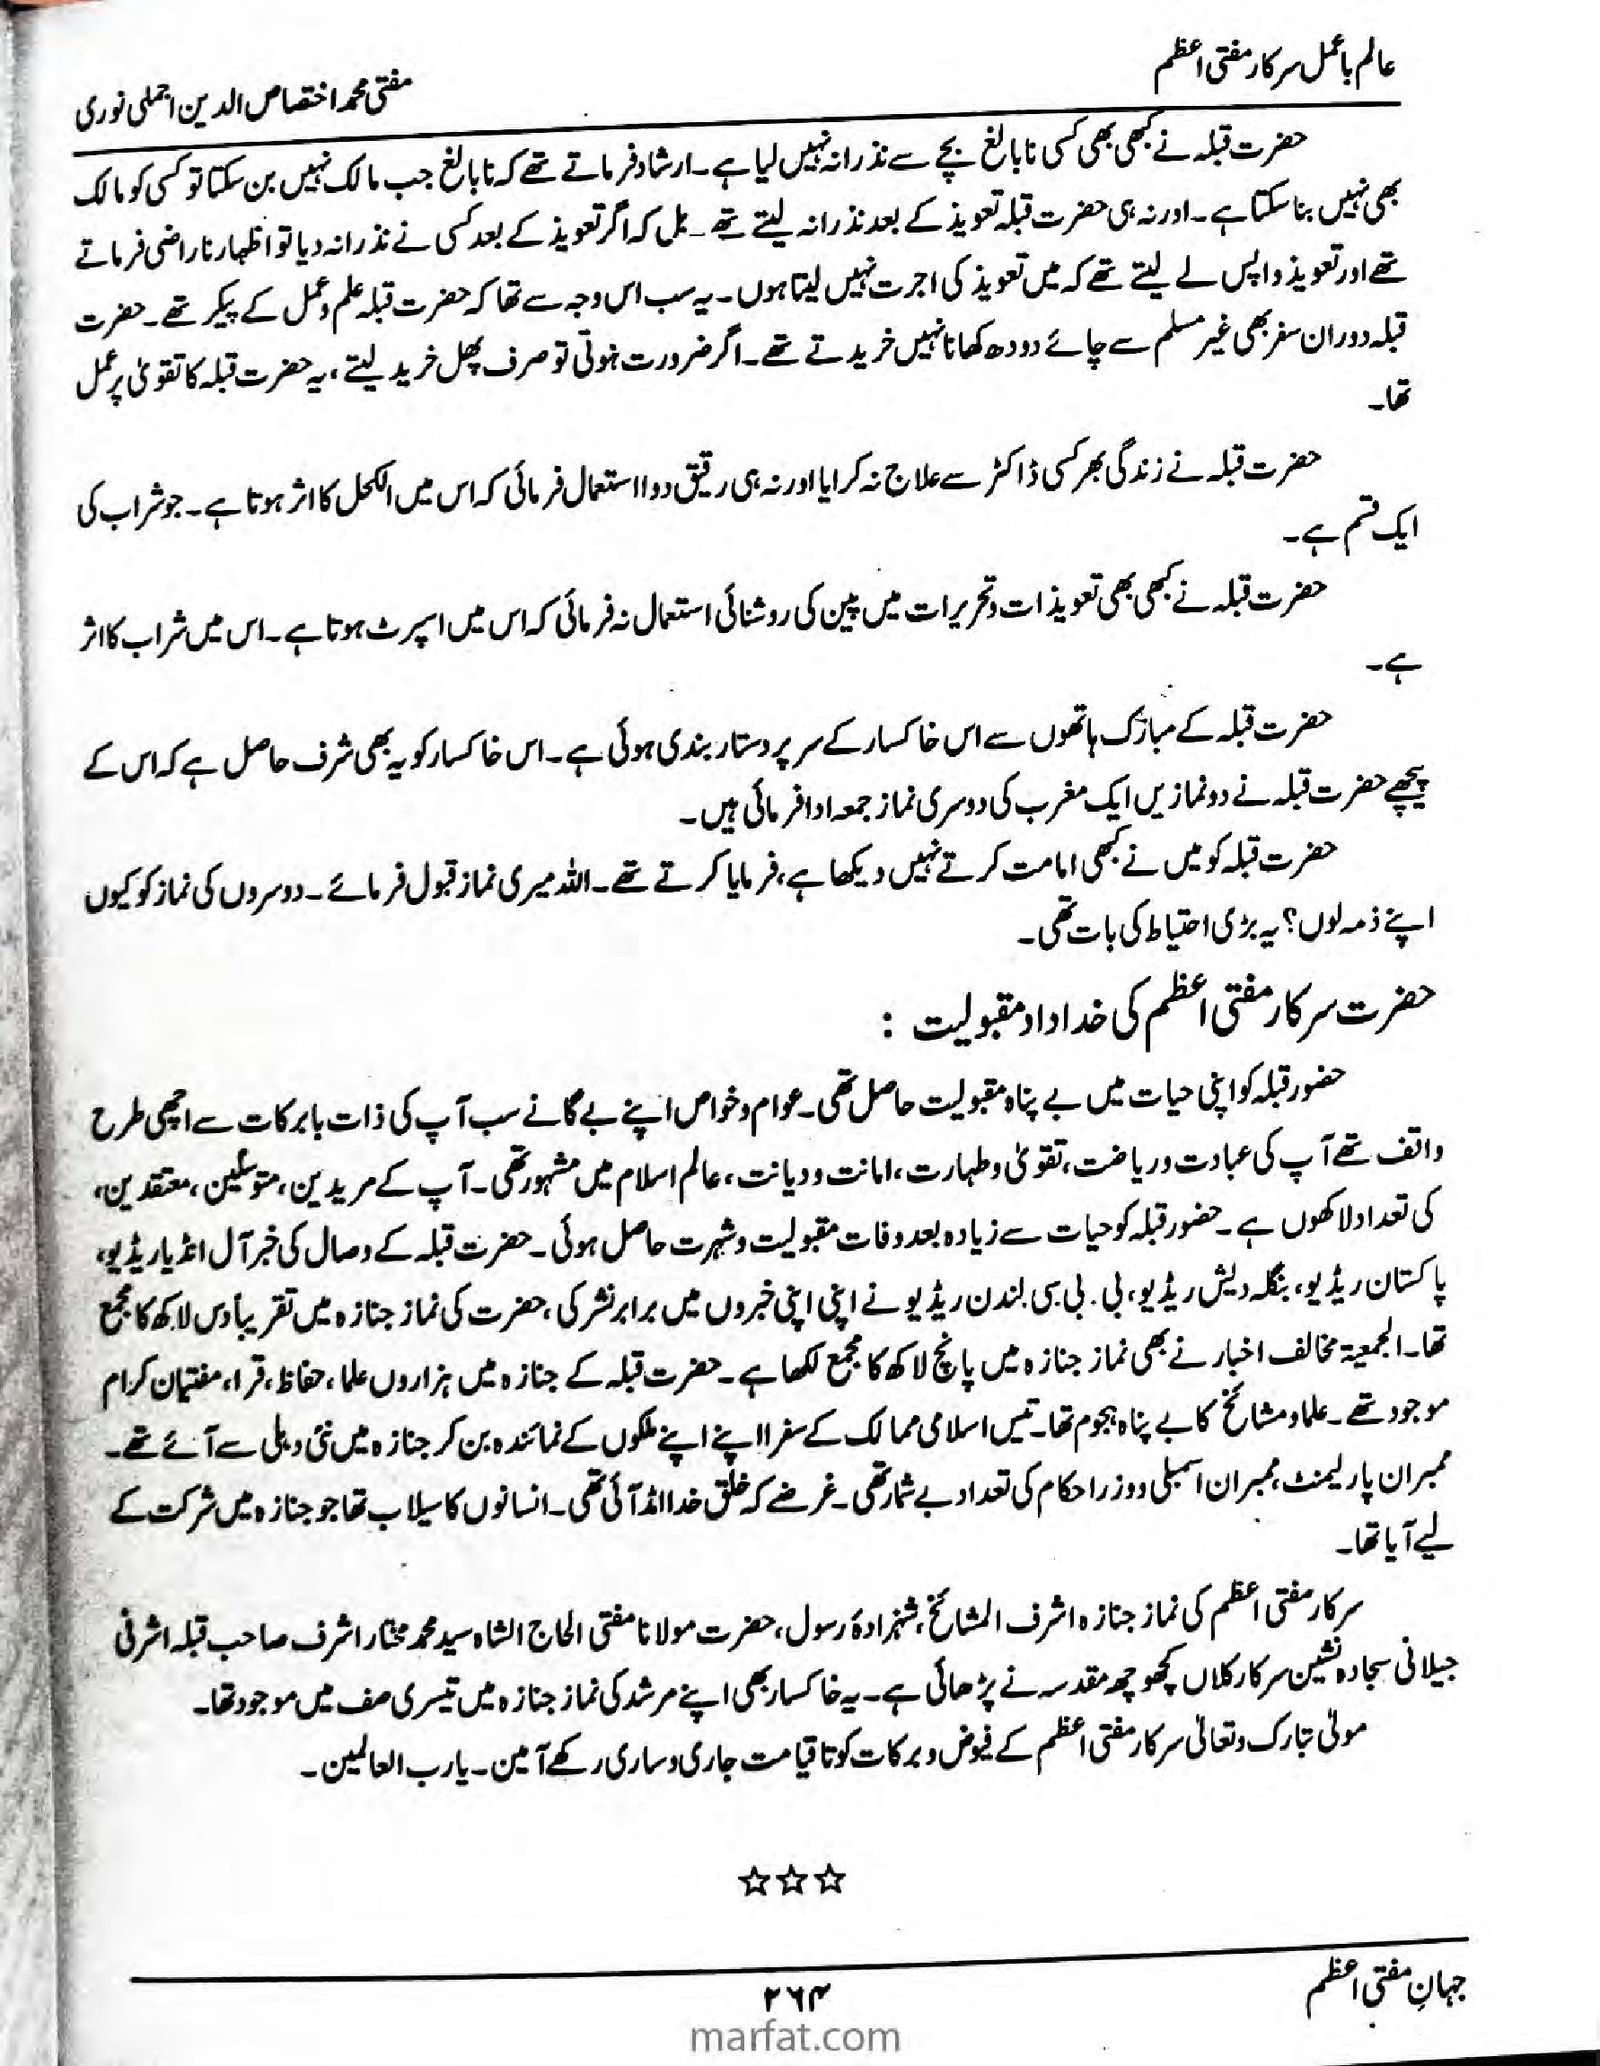 عالم باعمل سرکار مفتی اعظم
مفتی محمد اختصاص الدین اجملی نوری
حضرت قبلہ نے کبھی بھی کسی نابالغ بچے سے نذرانہ نہیں لیا ہے۔ ارشاد فرماتے تھے کہ نابالغ جب مالک نہیں بن سکتا تو کسی کو مالک
بھی نہیں بنا سکتا ہے۔ اور نہ ہی حضرت قبلہ تعویذ کے بعد نذرانہ لیتے تھے۔ بل کہ اگر تعویذ کے بعد کسی نے نذرانہ دیا تو اظہار ناراضی فرماتے
تھے اور تعویذ واپس لے لیتے تھے کہ میں تعویذ کی اجرت نہیں لیتا ہوں۔ یہ سب اس وجہ سے تھا کہ حضرت قبلہ علم و عمل کے پیکر تھے۔ حضرت
قبلہ دوران سفر بھی غیر مسلم سے چائے دودھ کھانا نہیں خریدتے تھے۔ اگر ضرورت ہوتی تو صرف پھل خرید لیتے، یہ حضرت قبلہ کا تقویٰ پر عمل
تھا۔
حضرت قبلہ نے زندگی بھر کسی ڈاکٹر سے علاج نہ کرایا اور نہ ہی رقیق دوا استعمال فرمائی کہ اس میں الکحل کا اثر ہوتا ہے۔ جو شراب کی
ایک قسم ہے۔
حضرت قبلہ نے کبھی بھی تعویذات و تحریرات میں پین کی روشنائی استعمال نہ فرمائی کہ اس میں اسپرٹ ہوتا ہے۔ اس میں شراب کا اثر
ہے۔
حضرت قبلہ کے مبارک ہاتھوں سے اس خاکسار کے سر پر دستار بندی ہوئی ہے۔ اس خاکسار کو یہ بھی شرف حاصل ہے کہ اس کے
پیچھے حضرت قبلہ نے دو نمازیں ایک مغرب کی دوسری نماز جمعہ ادا فرمائی ہیں۔
حضرت قبلہ کو میں نے کبھی امامت کرتے نہیں دیکھا ہے، فرمایا کرتے تھے۔ اللہ میری نماز قبول فرمائے۔ دوسروں کی نماز کو کیوں
اپنے ذمہ لوں؟ یہ بڑی احتیاط کی بات تھی۔
حضرت سرکار مفتی اعظم کی خداداد مقبولیت :
حضور قبلہ کو اپنی حیات میں بے پناہ مقبولیت حاصل تھی۔ عوام و خواص اپنے بے گانے سب آپ کی ذات بابرکات سے اچھی طرح
واقف تھے آپ کی عبادت و ریاضت، تقویٰ و طہارت، امانت و دیانت، عالم اسلام میں مشہور تھی۔ آپ کے مریدین، متوسلین، معتقدین،
کی تعداد لاکھوں ہے۔ حضور قبلہ کو حیات سے زیادہ بعد وفات مقبولیت و شہرت حاصل ہوئی۔ حضرت قبلہ کے وصال کی خبر آل انڈیا ریڈیو،
پاکستان ریڈیو، بنگلہ دیش ریڈیو، بی۔ بی۔ سی۔ لندن ریڈیو نے اپنی اپنی خبروں میں برابر نشر کی، حضرت کی نماز جنازہ میں تقریباً دس لاکھ کا مجمع
تھا۔ الجمعیۃ مخالف اخبار نے بھی نماز جنازہ میں پانچ لاکھ کا مجمع لکھا ہے۔ حضرت قبلہ کے جنازہ میں ہزاروں علما، حفاظ، قرا، مفتیان کرام
موجود تھے۔ علما و مشائخ کا بے پناہ ہجوم تھا۔ تیس اسلامی ممالک کے سفرا اپنے اپنے ملکوں کے نمائندہ بن کر جنازہ میں نئی دہلی سے آئے تھے۔
ممبران پارلیمنٹ، ممبران اسمبلی و وزرا حکام کی تعداد بے شمار تھی۔ غرضے کہ خلق خدا امڈ آئی تھی۔ انسانوں کا سیلاب تھا جو جنازہ میں شرکت کے
لیے آیا تھا۔
سرکار مفتی اعظم کی نماز جنازہ اشرف المشائخ، شہزادۂ رسول، حضرت مولانا مفتی الحاج الشاہ سید محمد مختار اشرف صاحب قبلہ اشرفی
جیلانی سجادہ نشین سرکار کلاں کچھوچھہ مقدسہ نے پڑھائی ہے۔ یہ خاکسار بھی اپنے مرشد کی نماز جنازہ میں تیسری صف میں موجود تھا۔
مولیٰ تبارک وتعالیٰ سرکار مفتی اعظم کے فیوض و برکات کو تا قیامت جاری و ساری رکھے آمین۔ یا رب العالمین۔
☆☆☆
جہانِ مفتی اعظم
۲۶۴
marfat.com